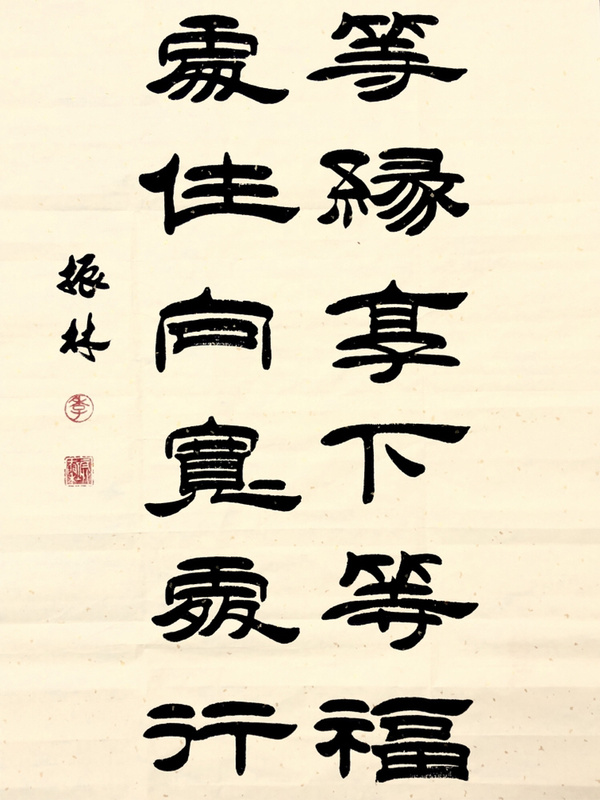 等緣享下等福
處住向寬處行
振林